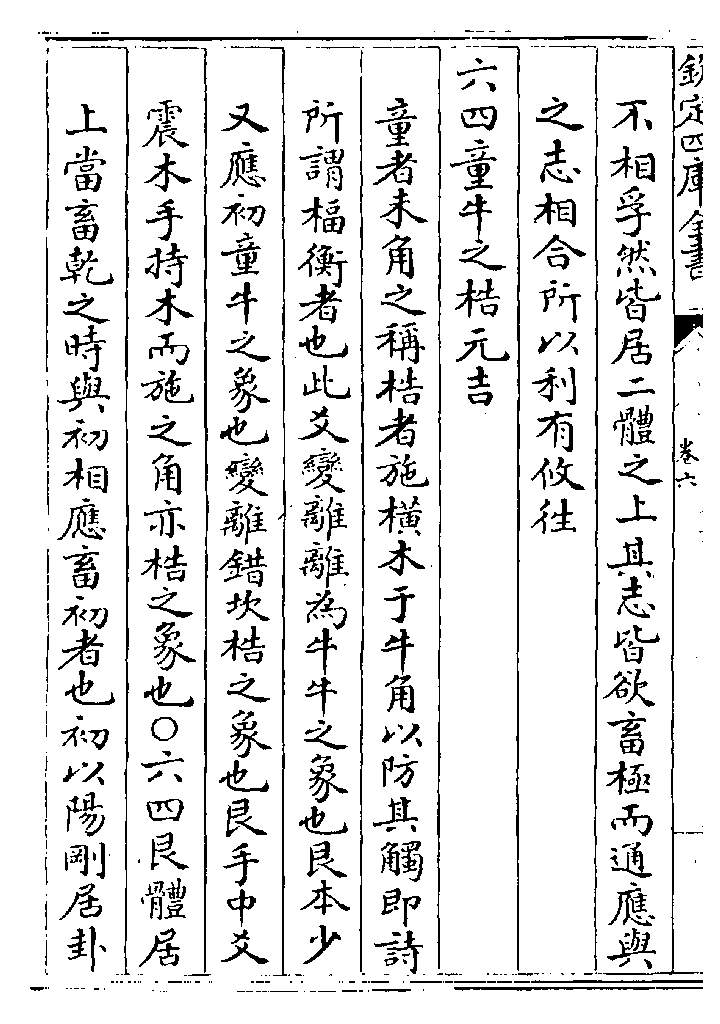 欽定四庫全書
卷六
不相孚然皆居二體之上其志皆欲畜極而通應與
之志相合所以利有攸往
六四童牛之梏元吉
童者未角之稱梏者施橫木于牛角以防其觸即詩
所謂楅衡者也此爻變離離為牛牛之象也艮本少
又應初童牛之象也變離錯坎梏之象也艮手中爻
震木手持木而施之角亦梏之象也○六四艮體居
上當畜乾之時與初相應畜初者也初以陽剛居卦